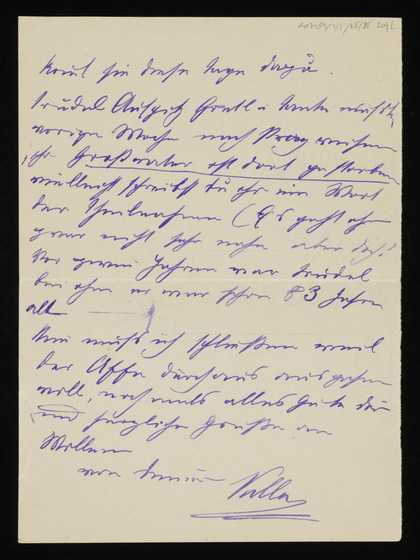 kommt sie diese Tage dazu.
Trudel Auspitz Gretl u Tante mußte
vorige Woche nach Prag reisen
ihr Großvater ist dort gestorben
vielleicht schreibst Du ihr ein Wort
der Theilnahme (Es geht ihr
zwar nicht sehr nahe aber doch!
Vor zwei Jahren war Trudel
bei ihm er war schon 83 Jahre
alt
Nun muß ich schließen weil
der Affe durchaus ausgehen
will, nochmals alles Gute Dir
und herzliche Grüße an
von Deiner